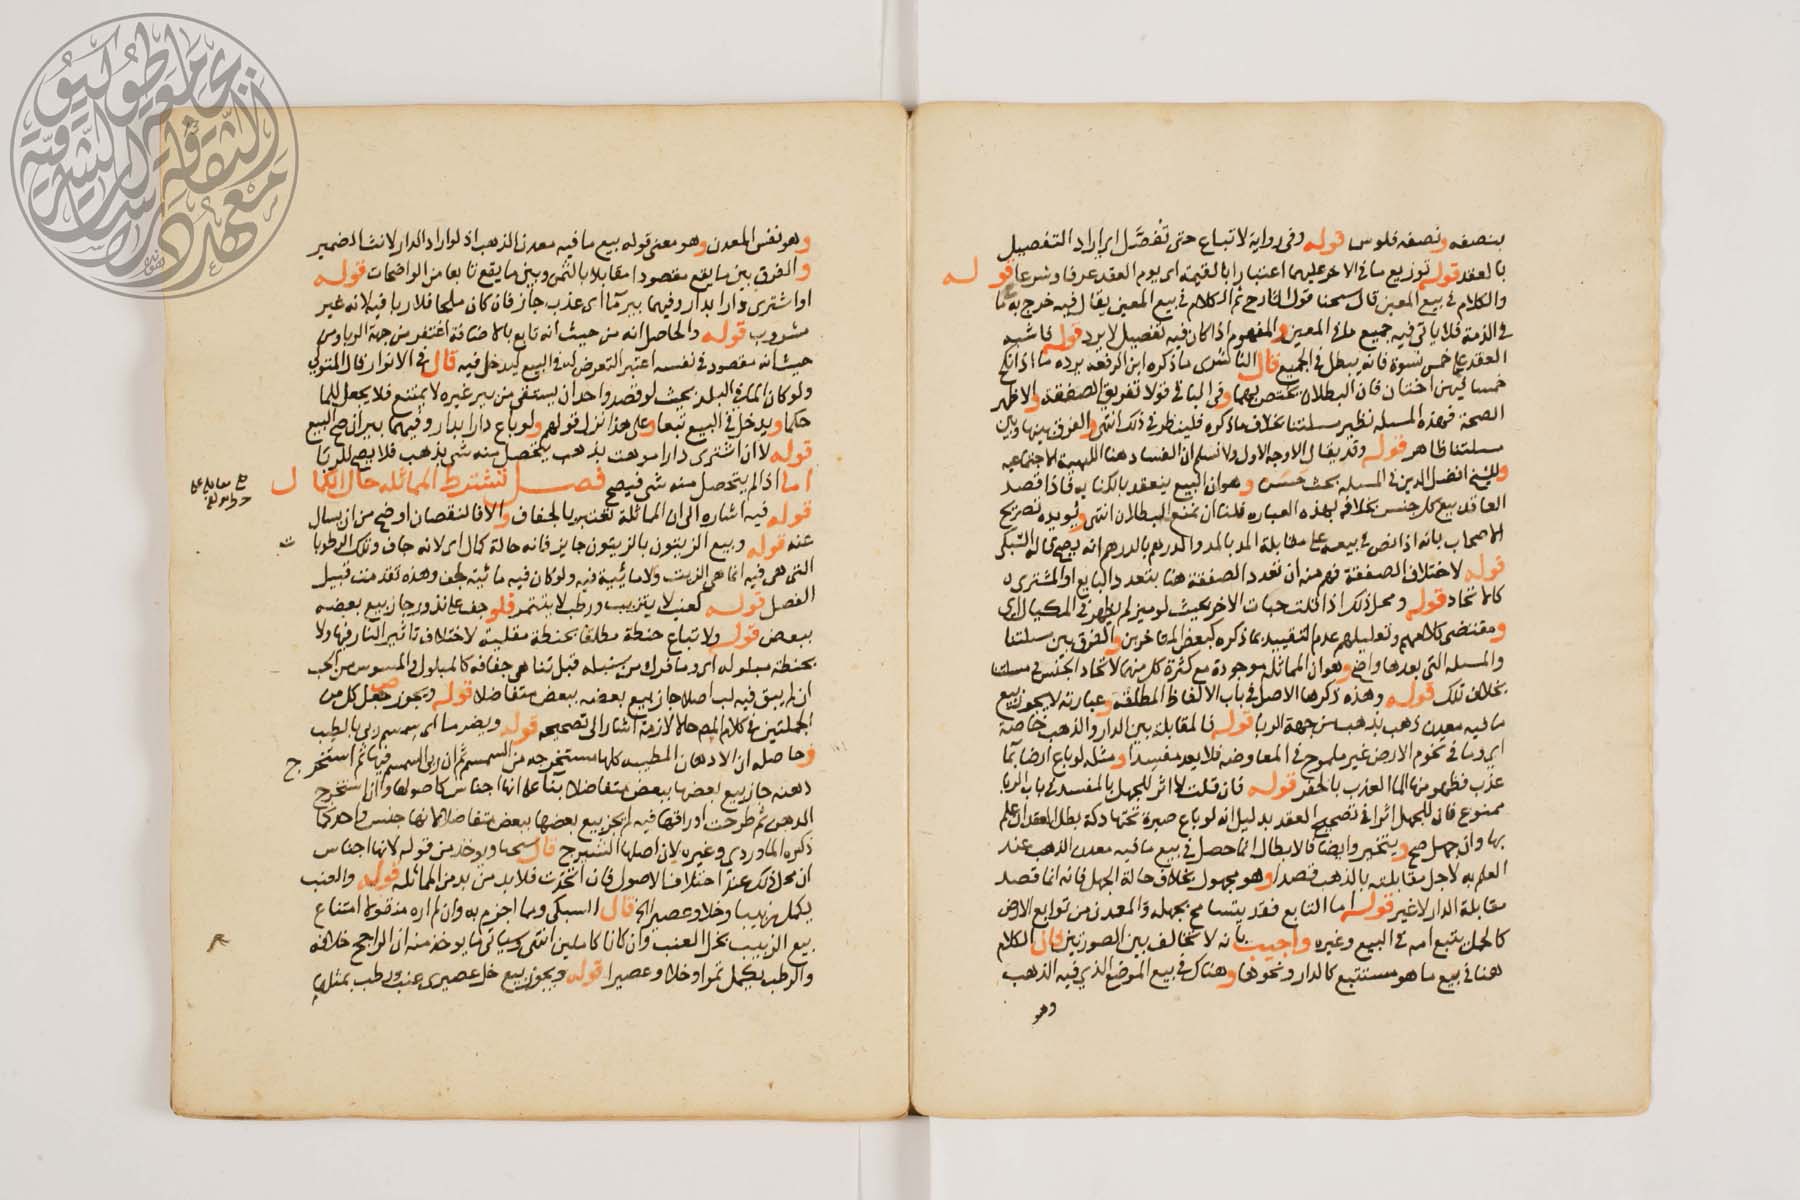 بنصفه ونصفه فلوس قوله وفى رواية لاتباع حتى تفصل ايراد التفصيل
بالعقد قوله توزيع ما فى الاخر عليهما اعتبارا بالقيمة اى يوم العقد عرفا وشرعا قوله
والكلام فى بيع المعين قال شيخنا قول الشارح ثم الكلام فى بيع المعين يقال فيه خرج به ما
فى الذمة فلا ياتى فيه جميع ما فى المعين والمفهوم اذا كان فيه تفصيل لا يرد قوله فاشبه
العقد على خمس نسوة فانه يبطل فى الجميع قال الناشرى ما ذكره ابن الرفعه يرده ما اذا نكح
خمسا فيهن اختان فان البطلان يختص بهما وفى الباقى قولا تفريق الصفقة والاظهر
الصحة فهذه المسئله نظير مسئلتنا بخلاف ما ذكره فلينظر فى ذلك انتهى والفرق بينها وبين
مسئلتنا ظاهر قوله وقد يقال الاوجه الاول ولا نسلم ان الفساد هنا للهيئة الاجتماعيه
وللشيخ افضل الدين فى المسئله بحث حسن وهو ان البيع ينعقد بالكنايه فاذا قصد
العاقد بيع كل جنس بخلافه بهذه العباره فلنا ان نمنع البطلان انتهى ويويده تصريح
الاصحاب بانه اذا نص فى بيعه على مقابلة المد بالمد والدرهم بالدرهم انه يصح قاله السبكى
قوله لاختلاف الصفقة فهم منه ان تعدد الصفقة هنا بتعدد البايع او المشترى
كالاتحاد قوله ومحل ذلك اذا قلت حبات الاخر بحيث لو ميز لم يظهر فى المكيال اى
ومقتضى كلامهم وتعليلهم عدم التقييد بما ذكره كبعض المتاخرين والفرق بين مسئلتنا
والمسئله التى بعدها واضح وهو ان المماثله موجودة مع كثرة كل منهما لاتحاد الجنس فى مسئلتنا
بخلاف تلك قوله وهذه ذكرها الاصل فى باب الالفاظ المطلقة وعبارته لا يجوز بيع
ما فيه معدن ذهب بذهب من جهة الربا قوله فالمقابلة بين الدار والذهب خاصة
اى وما فى تخوم الارض غير ملموح فى المعاوضه فلا يعد مفسدا ومثله لو باع ارضا بما
عذب فظهر منها الما العذب بالحفر قوله فان قلت لا اثر للجهل بالمفسد فى باب الربا
ممنوع فان للجهل اثرا فى تصحيح العقد بدليل انه لو باع صبرة تحتها دكة بطل العقد ان علم
بها وان جهل صح ويتخير وايضا فالابطال انما حصل فى بيع ما فيه معدن الذهب عند
العلم به لاجل مقابلته بالذهب قصدا وهو مجهول بخلاف حالة الجهل فانه انما قصد
مقابلة الدار لا غير قوله اما التابع فقد يتسامح بجهله والمعدن من توابع الارض
كالحمل يتبع امه فى البيع وغيره واجيب بانه لا تخالف بين الصورتين فان الكلام
هنا فى بيع ما هو مستتبع كالدار ونحوها وهناك فى بيع الموضع الذى فيه الذهب
وهو
وهو نفس المعدن وهو معنى قوله بيع ما فيه معدن الذهب اذ لو اراد الدار لانث الضمير
والفرق بين ما يقع مقصودا مقابلا بالثمن وبين ما يقع تابعا من الواضحات قوله
او اشترى دارا بدار وفيهما بير ماء اى عذب جاز فان كان ملحا فلا ربا فيه لانه غير
مشروب قوله والحاصل انه من حيث انه تابع بالاضافة اغتفر من جهة الربا ومن
حيث انه مقصود فى نفسه اعتبر التعرض له فى البيع ليدخل فيه قال فى الانوار قال المتولى
ولو كان الماء فى البلد بحيث لو قصد واحد ان يستقى من بير غيره لا يمتنع فلا يجعل للما
حكما ويدخل فى البيع تبعا وعلى هذا نزل قولهم ولو باع دارا بدار وفيهما بيران صح البيع
قوله لا ان اشترى دارا موهت بذهب يتحصل منه شى بذهب فلا يصح للربا
اما اذا لم يتحصل منه شى فيصح فصل تشترط المماثله حال الكمال
قوله فيه اشاره الى ان المماثلة تعتبر بالجفاف والا فالنقصان اوضح من ان يسال
عنه قوله وبيع الزيتون بالزيتون جايز فانه حالة كمال اى لانه جاف وتلك الرطوبات
التى هى فيه انما هى الزيت ولا مائية فيه ولو كان فيه مائية لجف وهذه تقدمت قبيل
الفصل قوله كعنب لا يتزبب ورطب لا يتتمر فلو جف على نذور جاز بيع بعضه
ببعض قوله ولا تباع حنطة مطلقا بحنطة مقلية لاختلاف تاثير النار فيها ولا
بحنطة مبلوله اى وما فرك من سنبله قبل تناهى جفافه كالمبلول وفى المسوس من الحب
ان لم يبق فيه لب اصلا جاز بيع بعضه ببعض متفاضلا قوله ويجوز جعل كل من
الجملتين فى كلام المص حالا لازمة اشار الى تصحيحه قوله ويضر ما اى سمسم ربى بالطيب
وحاصله ان الادهان المطيبه كلها مستخرجه من السمسم ثم ان ربى السمسم فيها ثم استخرج
دهنه جاز بيع بعضها ببعض متفاضلا بنا على انها اجناس كاصولها وان استخرج
الدهن ثم طرحت اوراقها فيه لم يجز بيع بعضها ببعض متفاضلا لانها جنس واحد كما
ذكره الماوردى وغيره لان اصلها الشيرج قال شيخنا ويوخذ من قوله لانها اجناس
ان محل ذلك عند اختلاف الاصول فان اتحدت فلا بد من بد من المماثله قوله والعنب
يكمل زبيبا وخلا وعصيرا الخ قال السبكى ومما اجزم به وان لم اره منقولا امتناع
بيع الزبيب بخل العنب وان كانا كاملين انتهى وسياتى ما يوخذ منه ان الراجح خلافه
والرطب يكمل تمرا وخلا وعصيرا قوله ويجوز بيع خل عصيرى عنب ورطب بمثله